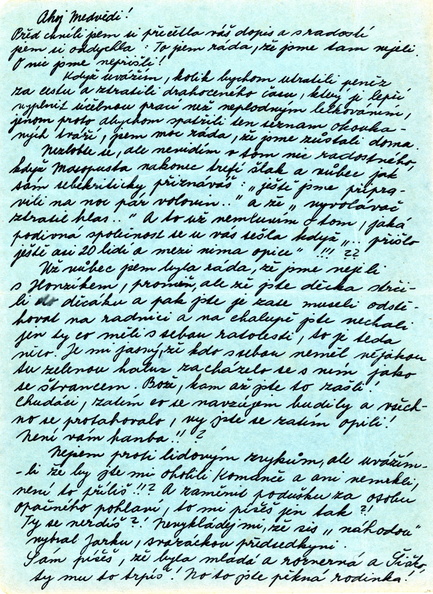 Ahoj Medvědi!
Před chvílí jsem si přečetla váš dopis a s radostí
jsem si oddychla: To jsem ráda, že jsme tam nejeli.
O nic jsme nepřišli!
Když uvážím, kolik bychom utratili peněz
za cestu a ztratili drahoceného času, který je lepší
vyplnit účelnou prací než neplodným
jenom proto abychom spatřili ten seznam okouka-
ných tváří, jsem moc ráda, že jsme zůstali doma.
Nezlobte se, ale nevidím v tom nic radostného,
když Masopusta nakonec trefí šlak a vůbec jak
sám sebekriticky přiznáváš: "ještě jsme připra-
vili na noc pár volovin.." a že "vyvolávač
ztratil hlas.." A to už nemluvím o tom, jaká
podivná společnost se u vás sešla když ".. přišlo
ještě asi 20 lidí a mezi nima opice" !!! ??
Už vůbec jsem byla ráda, že jsme nejeli
s Honzíkem, promiň, ale že jste děcka strči-
li do děcáku a pak jste je zase museli odstě-
hovat na radnici a na chalupě jste nechali
jen ty co měli s sebou ratolesti, to je teda
něco. Je mi jasný, že kdo s sebou neměl nějakou
tu zelenou haluz zacházelo se s ním jako
se štvancem. Bože, kam až jste to zašli!
Chudáci, zatím co se navzájem budily a všech-
no se protahovalo, vy jste se zatím opili!
Není vám hanba!! ?
Nejsem proti lidovým zvykům, ale uvážím-
-li že by jste mi oholili Komance a ani nemrkli,
není to příliš!!? A zaměnit podušku za osobu
opačného pohlaví, to mi píšeš jen tak?!
Ty se nerdíš?! Nevykládej mi, že sis "náhodou"
vybral Jarku, svazáckou předsedkyni.
Sám píšeš, že byla mladá a rozverná a
ty mu to trpíš? No to jste pěkná rodinka!